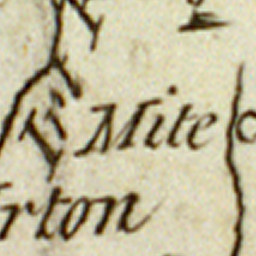 Mite
rton